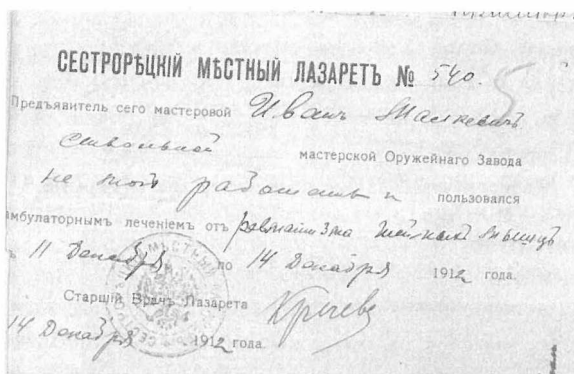 СЕСТРОРѢЦКІЙ МѢСТНЫЙ ЛАЗАРЕТЪ № 540.
Предъявитель сего мастеровой Иванъ Малкевичъ
ствольной мастерской Оружейнаго Завода
не могъ работать и пользовался
амбулаторнымъ леченіемъ отъ ревматизма шейныхъ мышцъ
ъ 11 Декабря по 14 Декабря 1912 года.
Старшій Врачъ Лазарета
14 Декабря 1912 года.